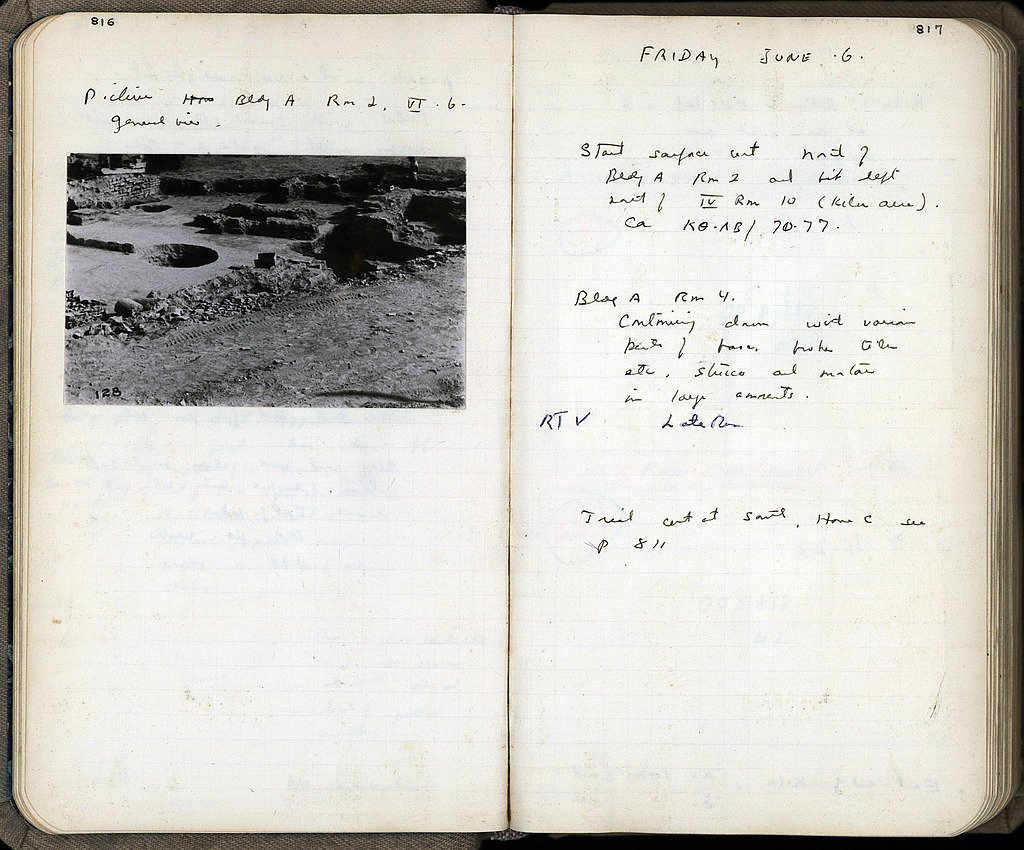 816
Picture Bldg A Rm 2, VI. 6.
General view.
128
817
FRIDAY JUNE .6.
Start surface cut north of
Bldg A Rm 2 and bit left
north of IV Rm 10 (kiln area).
Ca KΘ-ΛB/ 70-77.
Bldg A Rm 4.
Continuing down with various
parts of broken tiles
etc, stucco and
in large amounts.
RT V Late Rom
Trial cut at South, Home C see
P 811